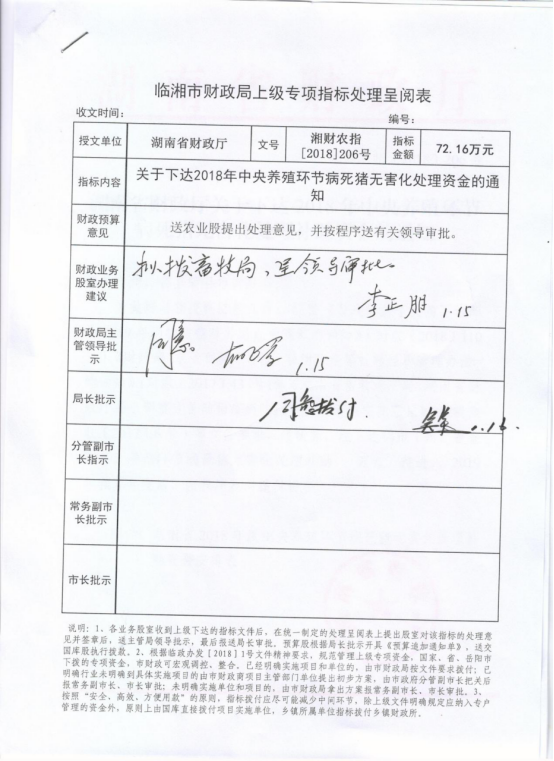 临湘市财政局上级专项指标处理呈阅表
收文时间： 编号：
授文单位 湖南省财政厅 文号 湘财农指[2018]206号 指标金额 72.16万元
指标内容 关于下达2018年中央养殖环节病死猪无害化处理资金的通知
财政预算意见 送农业股提出处理意见，并按程序送有关领导审批。
财政业务股室办理建议 拟拨畜牧局，呈领导审批。
李正明 1.15
财政局主管领导批示 同意。 1.15
局长批示 同意拨付. 1.16.
分管副市长指示
常务副市长批示
市长批示
说明：1、各业务股室收到上级下达的指标文件后，在统一制定的处理呈阅表上提出股室对该指标的处理意
见并签章后，送主管局领导批示，最后报送局长审批。预算股根据局长批示开具《预算追加通知单》，送交
国库股执行拨款。2、根据临政办发[2018]1号文件精神要求，规范管理上级专项资金，国家、省、岳阳市
下拨的专项资金，市财政可宏观调控、整合。已经明确实施项目和单位的，由市财政局按文件要求拨付；已
明确行业未明确到具体实施项目的由市财政商项目主管部门单位提出初步方案，由市政府分管副市长把关后
报常务副市长、市长审批；未明确实施单位和项目的，由市财政局拿出方案报常务副市长、市长审批。3、
按照“安全，高效、方便用款”的原则，指标拨付应尽可能减少中间环节，除上级文件明确规定应纳入专户
管理的资金外，原则上由国库直接拨付项目实施单位，乡镇所属单位指标拨付乡镇财政所。